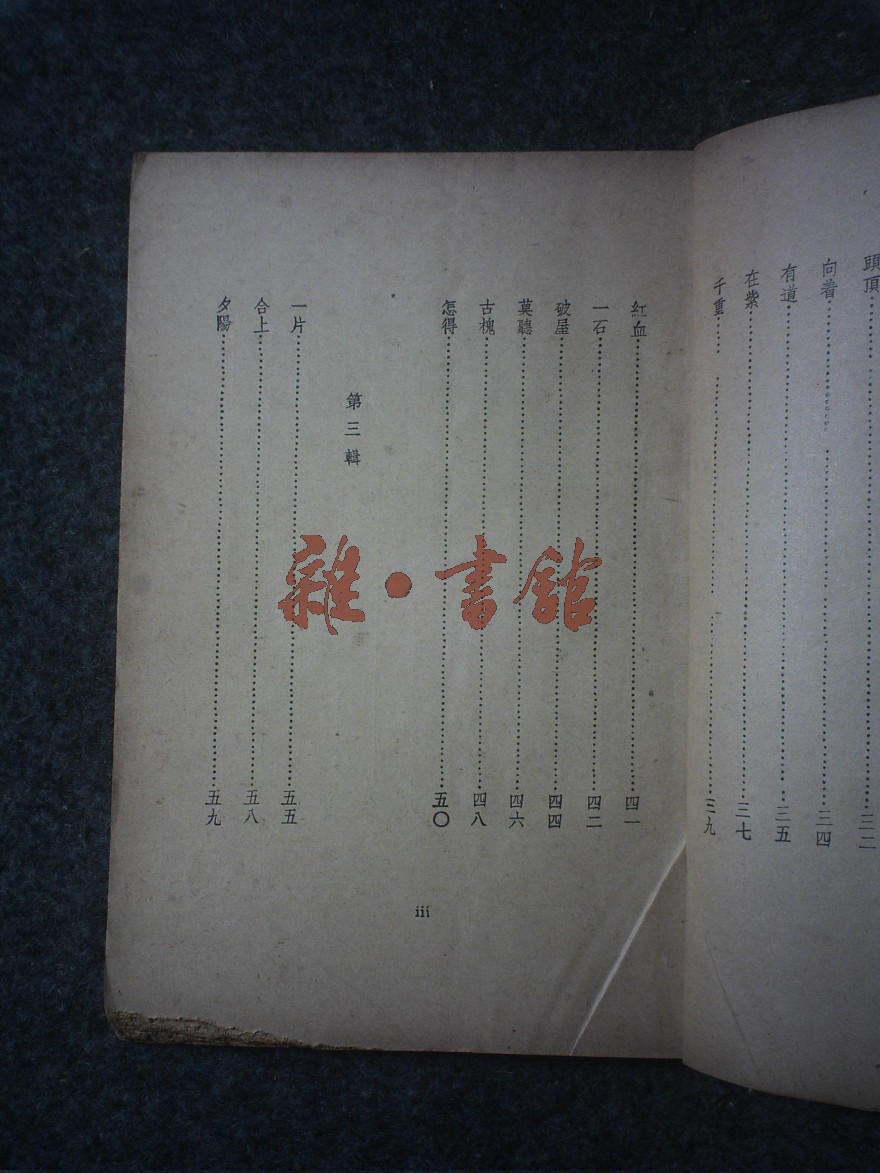 頭頂……三二
向着……三四
有道……三五
在紫……三七
千重……三九
紅血……四一
一石……四二
破屋……四四
莫聽……四六
古槐……四八
怎得……五〇
第三輯
一片……五五
合上……五八
夕陽……五九
iii
雜·書館